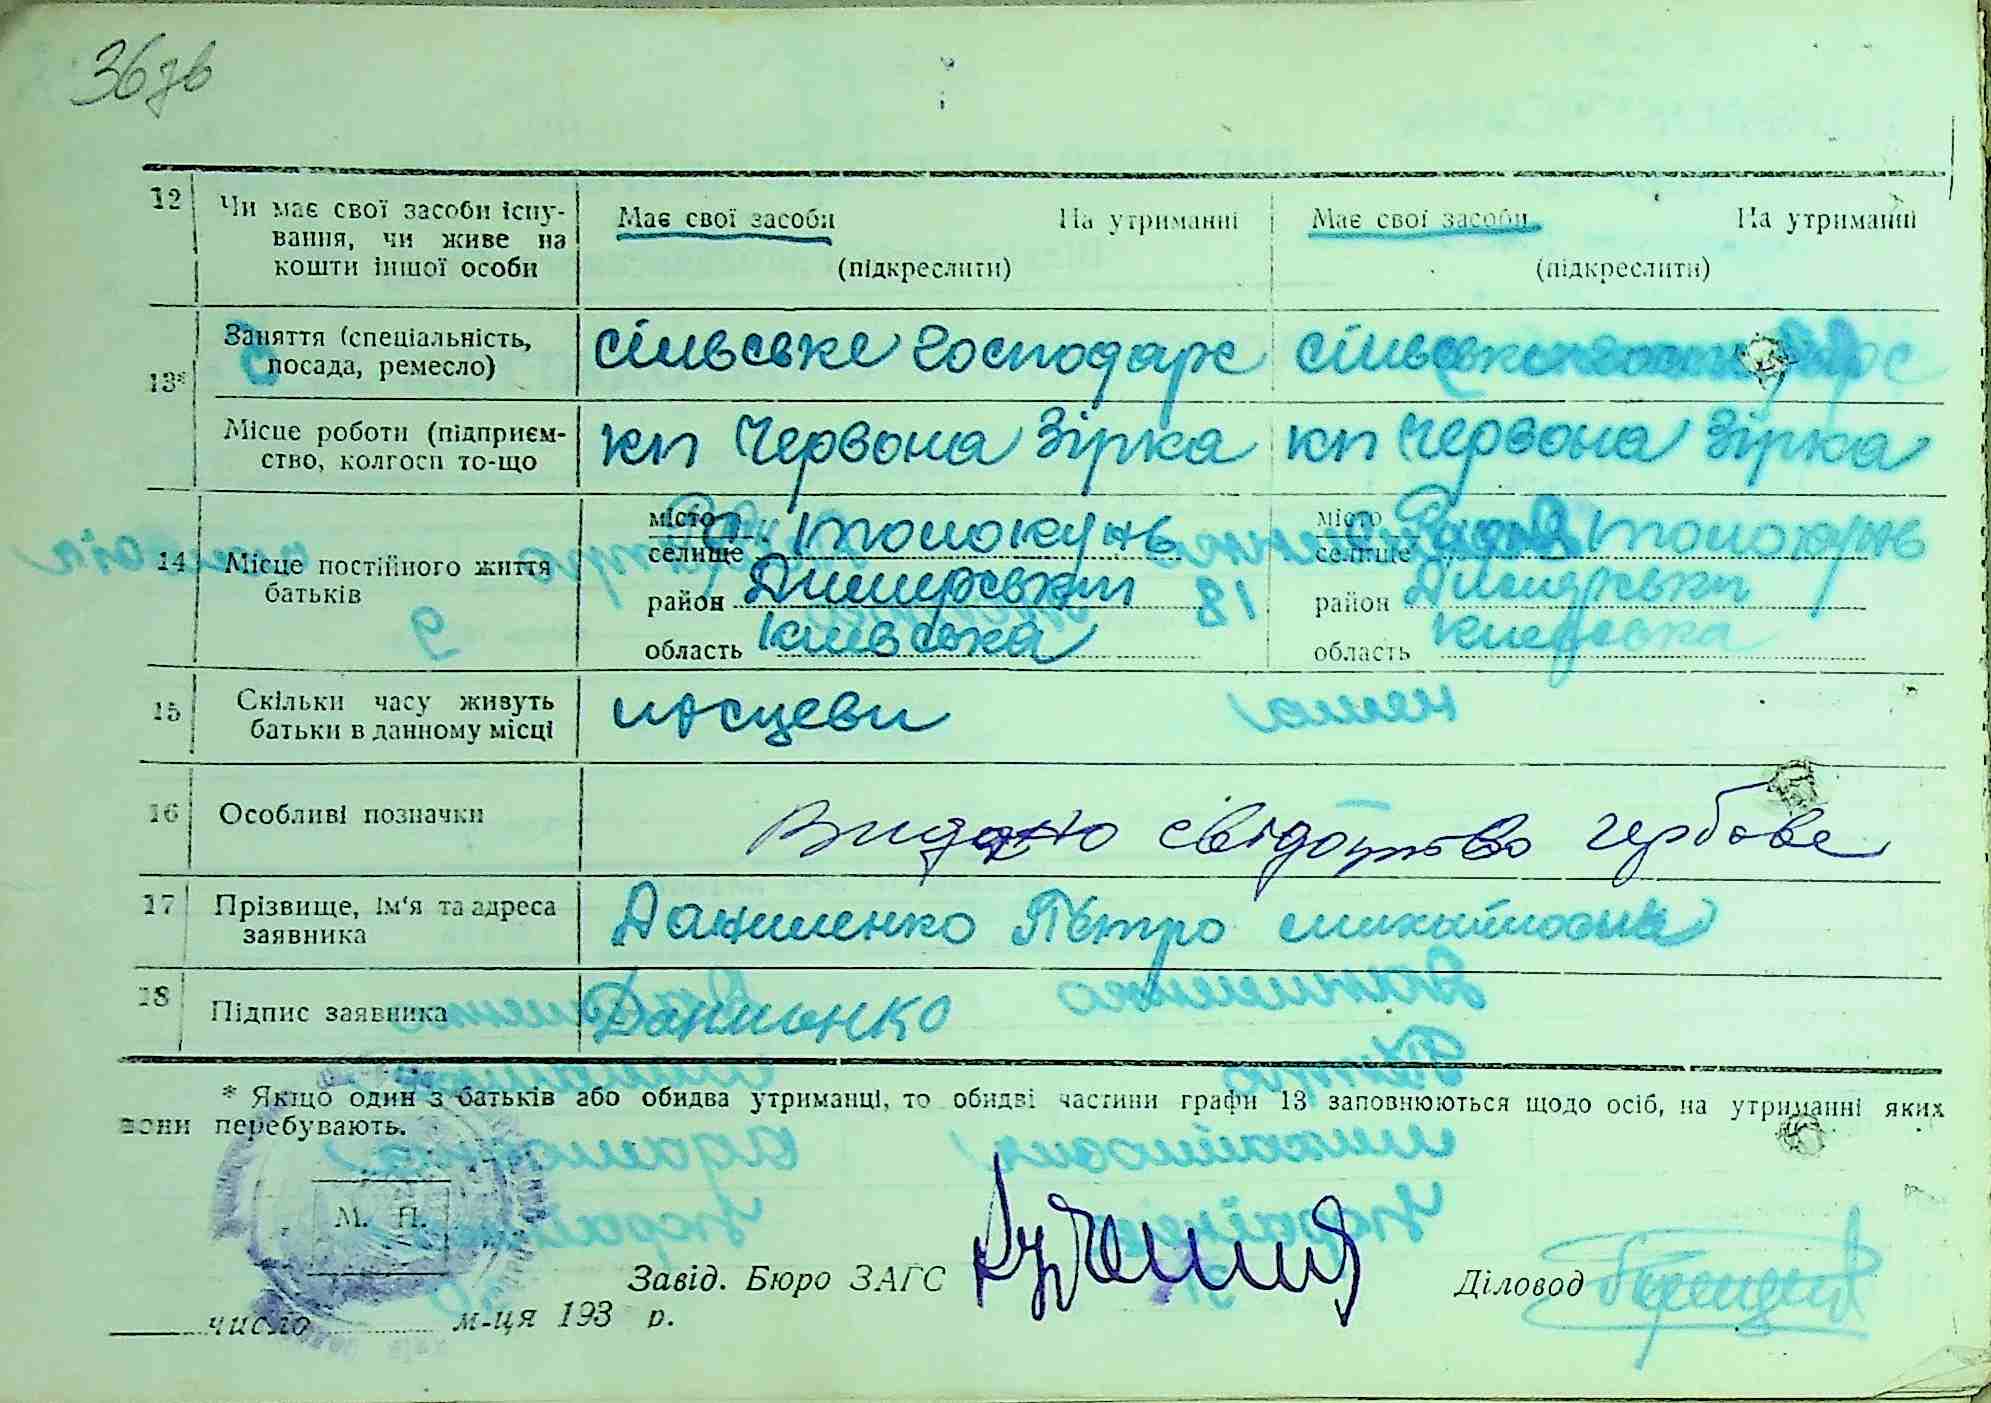 36 зв
12 Чи має свої засоби існу- Має свої засоби На утриманні Має свої засоби На утриманні
вання, чи живе на
кошти іншої особи (підкреслити) (підкреслити)
13* Заняття (спеціальність, посада, ремесло) сільське господарс сільське
Місце роботи (підприєм- кп Червона Зірка кп Червона Зірка
ство, колгосп то-що
14 Місце постійного життя батьків
місто селище с. Толокунь місто селище Толокунь
район Димерський район Димерський
область Київська область Київська
15 Скільки часу живуть місцеви
батьки в данному місці
16 Особливі позначки Видано свідотство гербове
17 Прізвище, ім'я та адреса Даниленко Петро Михайлович
заявника
18 Підпис заявника Даниленко
* Якщо один з батьків або обидва утриманці, то обидві частини графи 13 заповнюються щодо осіб, на утриманні яких
вони перебувають.
М. П.
Завід. Бюро ЗАГС Діловод
число м-ця 193 р.